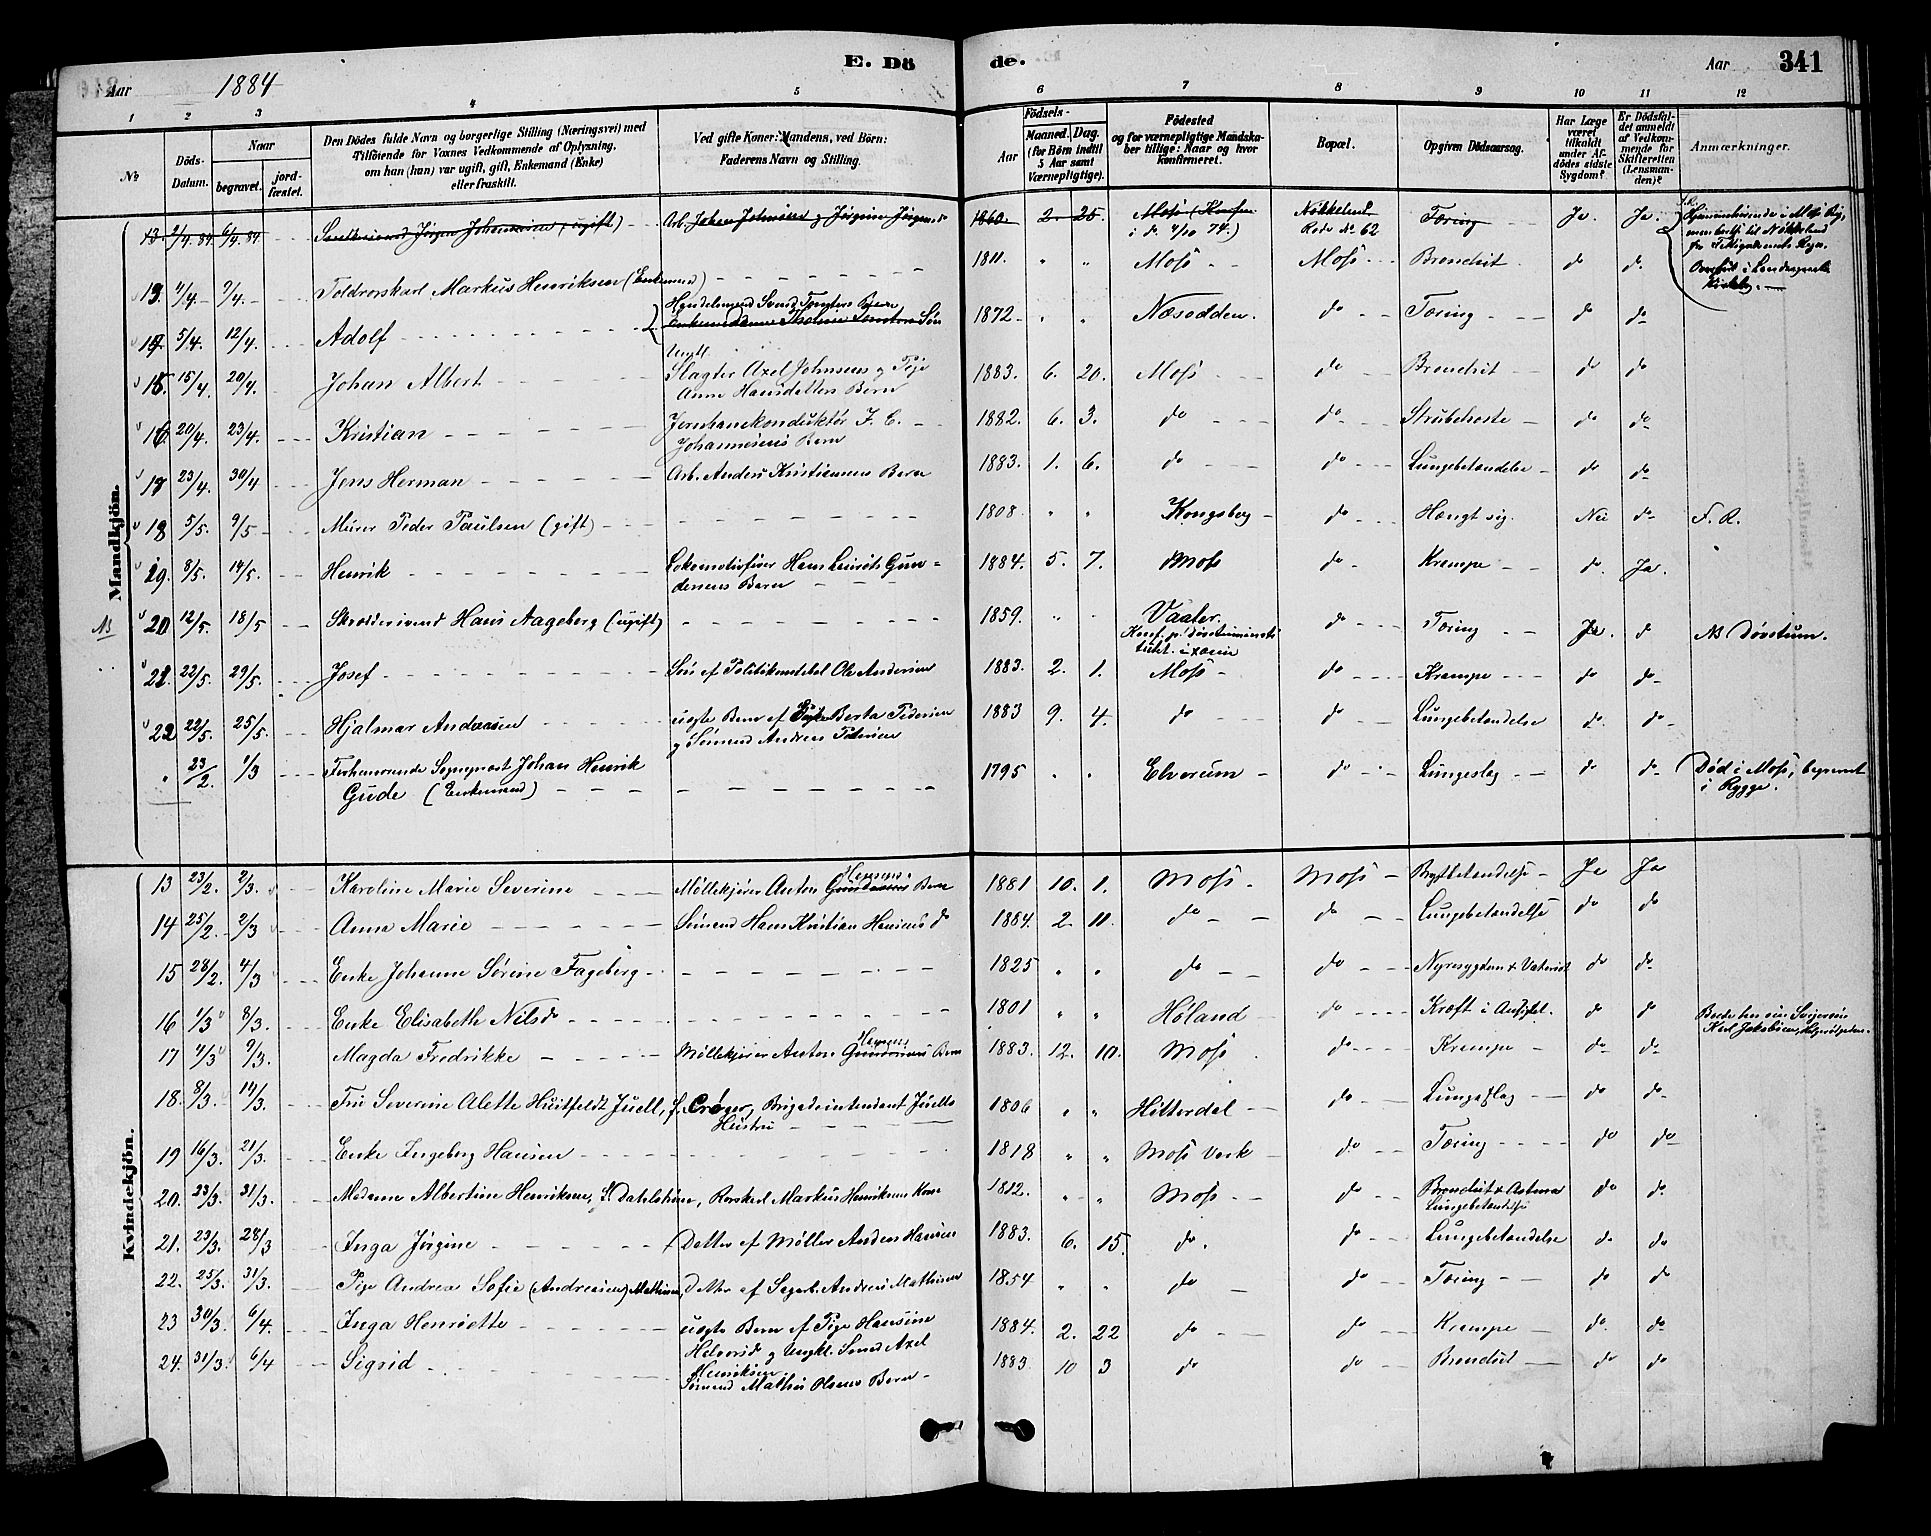 Aar 1884
E. Dö
de.
Aar
341
1 2 3 4 5 6 7 8 9 10 11 12
No
Döds-Datum.
Naar
begravet.
jord-fæstet.
Den Dödes fulde Navn og borgerlige Stilling (Næringsvei) med
Tilföiende for Voxnes Vedkommende af Oplysning,
om han (hun) var ugift, gift, Enkemand (Enke)
eller fraskilt.
Ved gifte Koner: Mandens, ved Börn:
Faderens Navn og Stilling.
Födsels-
Aar
Maaned. Dag.
(for Börn indtil
5 Aar samt
Værnepligtige).
Födested
og for værnepligtige Mandska-
ber tillige: Naar og hvor
konfirmeret.
Bopæl.
Opgiven Dödsaarsag.
Har Læge
været
tilkaldt
under Af-
dödes sidste
Sygdom?
Er Dödsfal-
det anmeldt
af Vedkom-
mende for
Skifteretten
(Lensman-
den)?
Anmærkninger.
Mandkjön.
13. 2/4.84 6/4.84 Jørgen Johannesen (ugift) Arb. Johan Johnsen g Jørgine Jørgensd. 1860. 2. 25. Moss (Konf. i do 4/10 74.) Nökkelund Rode No. 62 Tæring Ja. Ja.
13. 4/4 9/4. Toldrorskarl Markus Henriksen (Enkemand) 1811. " " Moss Moss Bronchit do do
14. 5/4. 12/4. Adolf 1872 " " Næsodden. do Tæring do do
15. 15/4. 20/4. Johan Albert Slagter Axel Johnsens g Pige
Anne Hansdatters Barn 1883. 6. 20. Moss do Bronchit do do
16. 20/4. 23/4. Kristian Jernbanekonduktør J. C.
Johannesens Barn 1882. 6. 3. do do Strubehoste do do
17 23/4. 30/4 Jens Herman Arb. Anders Kristiansens Barn 1883. 1. 6. do do Lungebetændelse do do
18 5/5. 9/5 Murer Peder Paulsen (gift) 1808. " " Kongsberg do Hængt sig. Nei do F. R.
19. 8/5. 14/5. Henrik Lokomotivfører Hans Gun-
dersens Barn 1884. 5. 7. Moss do Krampe do. Ja.
NB 20. 12/5. 18/5 Skræddersvend Hans Aageberg (ugift) 1859. " " Vaaler. do Tæring Ja. do NB Døvstum.
21. 22/5. 29/5. Josef Søn af Politikonstabel Ole Andersen 1883. 2. 1. Moss do Krampe do do
22 22/5. 25/5. Hjalmar Andreassen uægte Barn af Pige Berta Pedersen
g Sømand Andreas Petersen 1883 9. 4. do do Lungebetændelse do. do
" 23/2. 1/3 Forhenværende Sogneprest Johan Henrik
Gude (Enkemand) 1795 " " Elverum do Lungeslag do do Død i Moss, begravet
i Rygge.
Kvindekjön.
13 23/2. 2/3. Karoline Marie Severine Møllekjører Anton Hansens Barn 1881 10. 1. Moss. Moss Brystbetændelse Ja Ja
14 25/2. 2/3 Anna Marie Sømand Hans Kristian Hansens do 1884. 2. 11. do do Lungebetændelse do do
15 28/2. 4/3 Enke Johanne Sørine Fageberg 1825 " " do do Nyresygdom & Vatersot do do
16 1/3 8/3. Enke Elisabeth Nilsd. 1801 " " Høland do Kræft i Ansigtet. do do
17 4/3 9/3. Magda Fredrikke Møllekjører Anton Hansens Barn 1883. 12. 10. Moss do Krampe do do
18. 8/3. 14/3. Fru Severine Alette Huitfeldt Juell, f. Crøger, Brigadeintendant Juells
Hustru 1806 " " Hitterdal do Lungeslag do do
19 16/3. 21/3. Enke Ingeborg Hansen 1818 " " Moss Verk do Tæring do do
20. 23/3. 31/3. Madame Albertine Henriksen, f. Dahlstrøm, Rorskarl Markus Henriksens Kone 1812. " " Moss do Bronchit & Astma
Lungebetændelse do do
21. 23/3. 28/3 Inga Jørgine Datter af Møller Anders Hansen 1883. 6. 15. do. do Lungebetændelse do do
22. 25/3. 31/3. Pige Andrea Sofie (Andreasen) Mathisen, Datter af Sagarb. Andreas Mathisen 1854 " " do do Tæring do do
23 30/3. 6/4. Inga Henriette uægte Barn af Pige Hansine
Halvorsd. g Ungkl. Axel
Henriksen 1884. 2. 22 do do Krampe do. do
24. 31/3. 6/4 Sigrid Sømand Mathis Olsens Barn 1883. 10 3 do do Bronchit do do